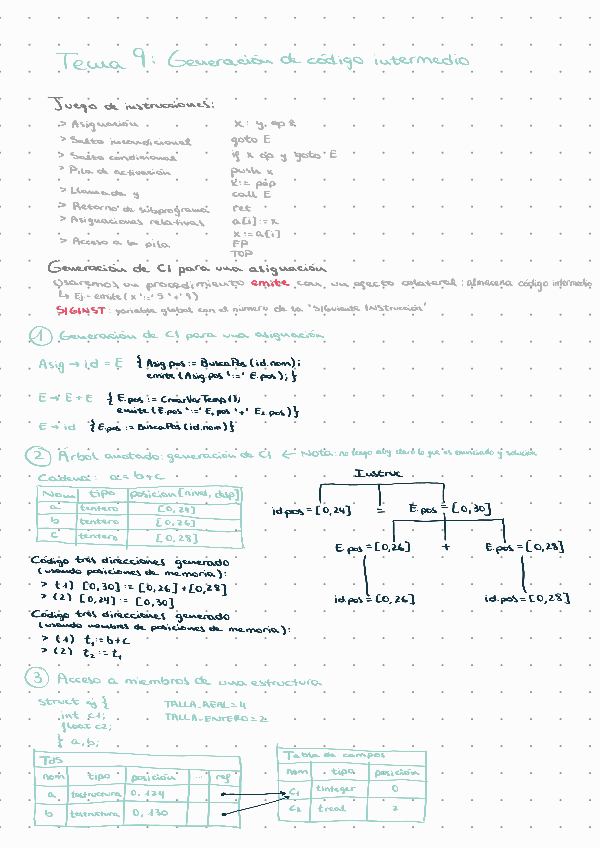 Tema 9: Generación de código intermedio
Juego de instrucciones:
> Asignación x: y, op z
> Salto incondicional goto E
> Salto condicional if x op y goto E
> Pila de activación push x
x:= pop
> Llamada y call E
> Retorno de subprograma ret
> Asignaciones relativas a[i]:=x
x:=a[i]
> Acceso a la pila FP
TOP
Generación de CI para una asignación
Usaremos un procedimiento emite con un efecto colateral: almacena código intermedio
↳ Ej - emite (x ':=' 5 '+' 9)
SIGINST: variable global con el número de la "SIGuiente INSTrucción"
1 Generación de CI para una asignación
Asig → id = E { Asig.pos := BuscaPos (id.nom);
emite (Asig.pos ':=' E.pos); }
E → E + E { E.pos := CrearVarTemp();
emite (E.pos ':=' E, pos '+' E2.pos)}
E → id {E.pos := BuscaPos (id.nom)}
2 Árbol anotado: generación de CI ← Nota: no tengo muy claro lo que es enunciado y solución
Cadena: a=b+c
Nom tipo posicion [nivel, desp]
a tentero [0,24]
b tentero [0,26]
c tentero [0,28]
Instruc
id.pos = [0,24] = E.pos = [0,30]
E.pos = [0,26] + E.pos = [0,28]
id.pos = [0,26] id.pos = [0,28]
Código tres direcciones generado
(usando posiciones de memoria):
> (1) [0,30] := [0,26]+[0,28]
> (2) [0,24] := [0,30]
Código tres direcciones generado
(usando nombres de posiciones de memoria):
> (1) t₁ := b+c
> (2) t₂ := t₁
3 Acceso a miembros de una estructura
struct ej { TALLA_REAL = 4
int c1; TALLA_ENTERO = 2
float c2;
} a,b;
TdS
nom tipo posición ... ref
a testructura 0, 124
b testructura 0, 130
Tabla de campos
nom tipo posición
c₁ tinteger 0
c₂ treal 2